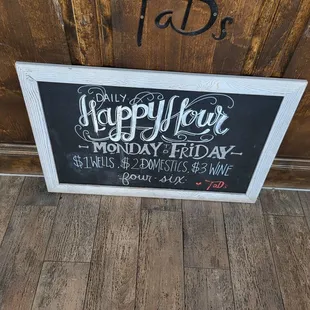 TaDs
DAILY
Happy Hour
MONDAY to FRIDAY
$1 WELLS, $2 DOMESTICS, $3 WINE
four - six
TaDs